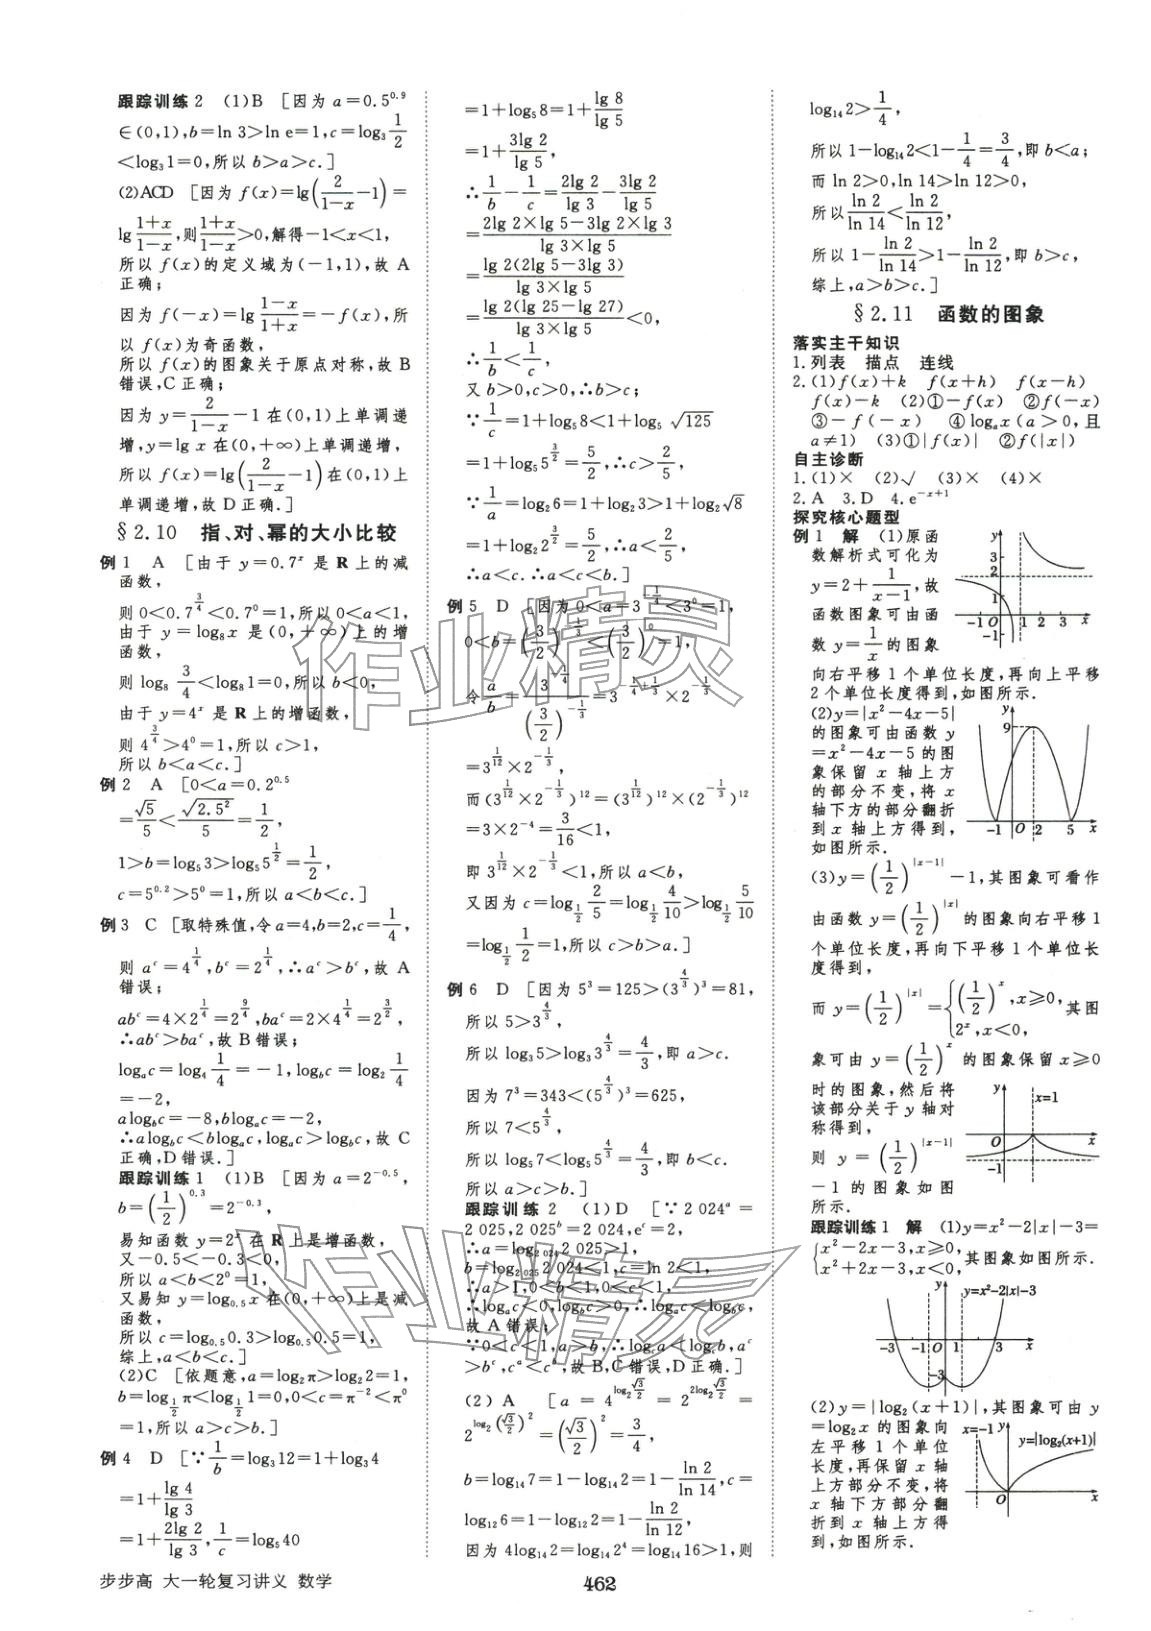 跟踪训练2 (1)B [因为a=0.5^{0.9}
∈(0,1),b=ln 3>ln e=1,c=log₃\frac{1}{2}
<log₃1=0,所以b>a>c.]
(2)ACD [因为f(x)=lg(\frac{2}{1-x}-1)=
lg\frac{1+x}{1-x},则\frac{1+x}{1-x}>0,解得-1<x<1,
所以f(x)的定义域为(-1,1),故A
正确;
因为f(-x)=lg\frac{1-x}{1+x}=-f(x),所
以f(x)为奇函数,
所以f(x)的图象关于原点对称,故B
错误,C正确;
因为y=\frac{2}{1-x}-1在(0,1)上单调递
增,y=lg x在(0,+∞)上单调递增,
所以f(x)=lg(\frac{2}{1-x}-1)在(0,1)上
单调递增,故D正确.]
§2.10 指、对、幂的大小比较
例1 A [由于y=0.7^x是R上的减
函数,
则0<0.7^{\frac{3}{4}}<0.7^0=1,所以0<a<1,
由于y=log₈x是(0,+∞)上的增
函数,
则log₈\frac{3}{4}<log₈1=0,所以b<0,
由于y=4^x是R上的增函数,
则4^{\frac{3}{4}}>4^0=1,所以c>1,
所以b<a<c.]
例2 A [0<a=0.2^{0.5}
=\frac{√5}{5}<\frac{√2.5²}{5}=\frac{1}{2},
1>b=log₅3>log₅5^{\frac{1}{2}}=\frac{1}{2},
c=5^{0.2}>5^0=1,所以a<b<c.]
例3 C [取特殊值,令a=4,b=2,c=\frac{1}{4},
则a^c=4^{\frac{1}{4}},b^c=2^{\frac{1}{4}},∴a^c>b^c,故A
错误;
ab^c=4×2^{\frac{1}{4}}=2^{\frac{9}{4}},ba^c=2×4^{\frac{1}{4}}=2^{\frac{3}{2}},
∴ab^c>ba^c,故B错误;
log_a c=log₄\frac{1}{4}=-1,log_b c=log₂\frac{1}{4}
=-2,
alog_b c=-8,blog_a c=-2,
∴alog_b c<blog_a c,log_a c>log_b c,故C
正确,D错误.]
跟踪训练1 (1)B [因为a=2^{-0.5},
b=(\frac{1}{2})^{0.3}=2^{-0.3},
易知函数y=2^x在R上是增函数,
又-0.5<-0.3<0,
所以a<b<2^0=1,
又易知y=log_{0.5}x在(0,+∞)上是减
函数,
所以c=log_{0.5}0.3>log_{0.5}0.5=1,
综上,a<b<c.]
(2)C [依题意,a=log₂π>log₂2=1,
b=log_{\frac{1}{2}}π<log_{\frac{1}{2}}1=0,0<c=π^{-2}<π^0
=1,所以a>c>b.]
例4 D [∵\frac{1}{b}=log₃12=1+log₃4
=1+\frac{lg 4}{lg 3}
=1+\frac{2lg 2}{lg 3},\frac{1}{c}=log₅40
=1+log₅8=1+\frac{lg 8}{lg 5}
=1+\frac{3lg 2}{lg 5},
∴\frac{1}{b}-\frac{1}{c}=\frac{2lg 2}{lg 3}-\frac{3lg 2}{lg 5}
=\frac{2lg 2×lg 5-3lg 2×lg 3}{lg 3×lg 5}
=\frac{lg 2(2lg 5-3lg 3)}{lg 3×lg 5}
=\frac{lg 2(lg 25-lg 27)}{lg 3×lg 5}<0,
∴\frac{1}{b}<\frac{1}{c},
又b>0,c>0,∴b>c;
∵\frac{1}{c}=1+log₅8<1+log₅√125
=1+log₅5^{\frac{3}{2}}=\frac{5}{2},∴c>\frac{2}{5},
∵\frac{1}{a}=log₂6=1+log₂3>1+log₂√8
=1+log₂2^{\frac{3}{2}}=\frac{5}{2},∴a<\frac{2}{5},
∴a<c.∴a<c<b.]
例5 D [因为0<a=3^{-\frac{1}{4}}<3^0=1,
0<b=(\frac{3}{2})^{-\frac{1}{3}}<(\frac{3}{2})^0=1,
令\frac{a}{b}=\frac{3^{-\frac{1}{4}}}{(\frac{3}{2})^{-\frac{1}{3}}}=3^{-\frac{1}{4}+\frac{1}{3}}×2^{-\frac{1}{3}}
=3^{\frac{1}{12}}×2^{-\frac{1}{3}},
而(3^{\frac{1}{12}}×2^{-\frac{1}{3}})^{12}=(3^{\frac{1}{12}})^{12}×(2^{-\frac{1}{3}})^{12}
=3×2^{-4}=\frac{3}{16}<1,
即3^{\frac{1}{12}}×2^{-\frac{1}{3}}<1,所以a<b,
又因为c=log_{\frac{1}{2}}\frac{2}{5}=log_{\frac{1}{2}}\frac{4}{10}>log_{\frac{1}{2}}\frac{5}{10}
=log_{\frac{1}{2}}\frac{1}{2}=1,所以c>b>a.]
例6 D [因为5³=125>(3^{\frac{4}{3}})³=81,
所以5>3^{\frac{4}{3}},
所以log₃5>log₃3^{\frac{4}{3}}=\frac{4}{3},即a>c.
因为7³=343<(5^{\frac{4}{3}})³=625,
所以7<5^{\frac{4}{3}},
所以log₅7<log₅5^{\frac{4}{3}}=\frac{4}{3},即b<c.
所以a>c>b.]
跟踪训练2 (1)D [∵2 024^a=
2 025,2 025^b=2 024,e^c=2,
∴a=log_{2 024}2 025>1,
b=log_{2 025}2 024<1,c=ln 2<1,
∴a>1,0<b<1,0<c<1,
∴log_a c<0,log_b c>0,∴log_a c<log_b c,
故A错误;
∵0<c<1,a>b,∴log_c a<log_c b,a^c
>b^c,c^a<c^b,故B,C错误,D正确.]
(2)A [a=4^{log₂\frac{√3}{2}}=2^{2log₂\frac{√3}{2}}=
2^{log₂(\frac{√3}{2})²}=(\frac{√3}{2})²=\frac{3}{4},
b=log₁₄7=1-log₁₄2=1-\frac{ln 2}{ln 14},c=
log₁₂6=1-log₁₂2=1-\frac{ln 2}{ln 12},
因为4log₁₄2=log₁₄2⁴=log₁₄16>1,则
log₁₄2>\frac{1}{4},
所以1-log₁₄2<1-\frac{1}{4}=\frac{3}{4},即b<a;
而ln 2>0,ln 14>ln 12>0,
所以\frac{ln 2}{ln 14}<\frac{ln 2}{ln 12},
所以1-\frac{ln 2}{ln 14}>1-\frac{ln 2}{ln 12},即b>c,
综上,a>b>c.]
§2.11 函数的图象
落实主干知识
1.列表 描点 连线
2.(1)f(x)+k f(x+h) f(x-h)
f(x)-k (2)①-f(x) ②f(-x)
③-f(-x) ④log_a x(a>0,且
a≠1) (3)①|f(x)| ②f(|x|)
自主诊断
1.(1)× (2)√ (3)× (4)×
2.A 3.D 4.e^{-x+1}
探究核心题型
例1 解 (1)原函
数解析式可化为
y=2+\frac{1}{x-1},故
函数图象可由函
数y=\frac{1}{x}的图象
向右平移1个单位长度,再向上平移
2个单位长度得到,如图所示.
y
3
2
1
-1 O 1 2 3 x
-1
(2)y=|x²-4x-5|
的图象可由函数y
=x²-4x-5的图
象保留x轴上方
的部分不变,将x
轴下方的部分翻折
到x轴上方得到,
如图所示.
y
9
-1 O 2 5 x
(3)y=(\frac{1}{2})^{|x-1|}-1,其图象可看作
由函数y=(\frac{1}{2})^{|x|}的图象向右平移1
个单位长度,再向下平移1个单位长
度得到,
而y=(\frac{1}{2})^{|x|}={(\frac{1}{2})^x,x≥0, 2^x,x<0,其图
象可由y=(\frac{1}{2})^x的图象保留x≥0
时的图象,然后将
该部分关于y轴对
称得到,
则y=(\frac{1}{2})^{|x-1|}
-1的图象如图
所示.
y
x=1
O x
-1
跟踪训练1 解 (1)y=x²-2|x|-3=
{x²-2x-3,x≥0, x²+2x-3,x<0,其图象如图所示.
y=x²-2|x|-3
-3 -1 O 1 3 x
-3
(2)y=|log₂(x+1)|,其图象可由y
=log₂x的图象向
左平移1个单位
长度,再保留x轴
上方部分不变,将
x轴下方部分翻
折到x轴上方得
到,如图所示.
x=-1 y
y=|log₂(x+1)|
O x
步步高 大一轮复习讲义 数学
462
作业精灵
作业精灵